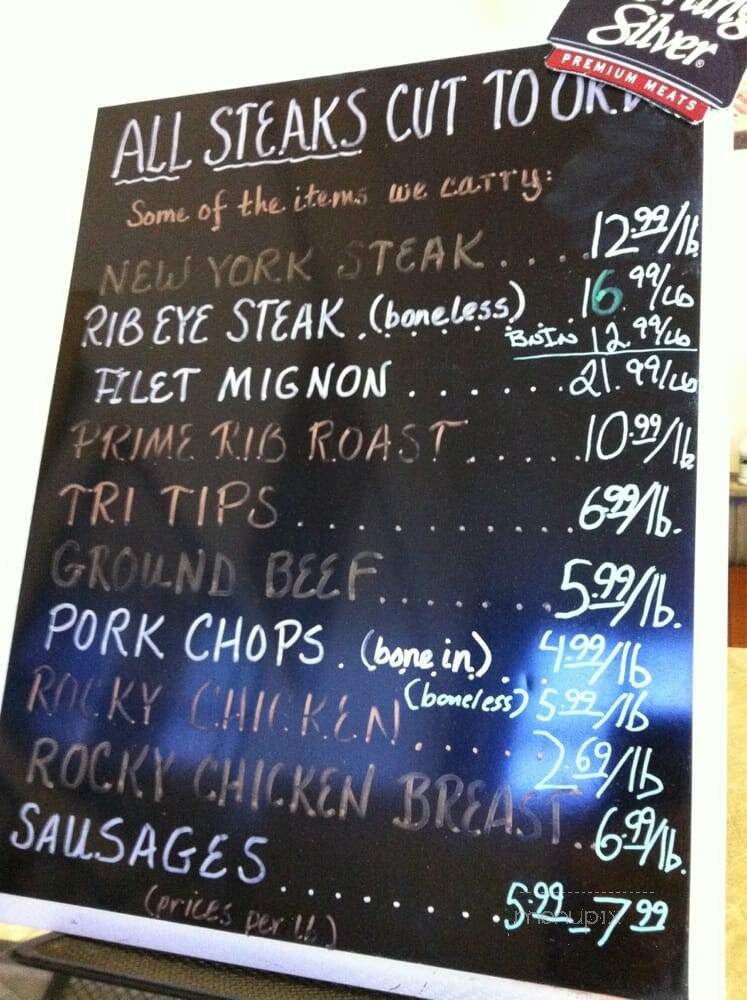 Silver®
PREMIUM MEATS
ALL STEAKS CUT TO
Some of the items we carry:
NEW YORK STEAK . . . . 12.99/lb
RIB EYE STEAK . (boneless) . 16.99/lb
BNIN 12.99/lb
FILET MIGNON . . . . . . 21.99/lb
PRIME RIB ROAST . . . . . 10.99/lb
TRI TIPS . . . . . . . . . . . 6.99/lb.
GROUND BEEF . . . . . . . 5.99/lb.
PORK CHOPS . (bone in) . 4.99/lb
(boneless) 5.99/lb
ROCKY CHICKEN . . . . . 2.69/lb
ROCKY CHICKEN BREAST . . 6.99/lb.
SAUSAGES . . . . . . . . . 5.99 - 7.99
(prices per lb)
menupix